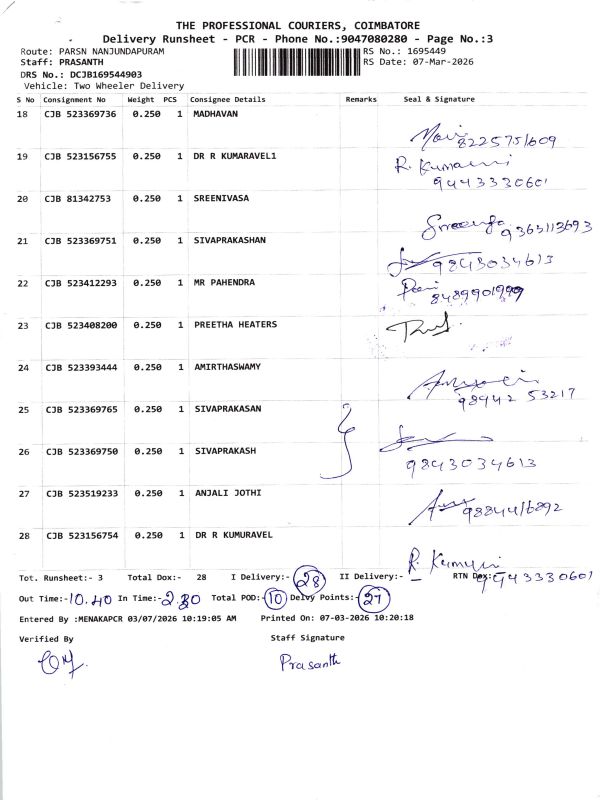 THE PROFESSIONAL COURIERS, COIMBATORE
Delivery Runsheet - PCR - Phone No.:9047080280 - Page No.:3
Route: PARSN NANJUNDAPURAM RS No.: 1695449
Staff: PRASANTH RS Date: 07-Mar-2026
DRS No.: DCJB169544903
Vehicle: Two Wheeler Delivery
S No Consignment No Weight PCS Consignee Details Remarks Seal & Signature
18 CJB 523369736 0.250 1 MADHAVAN
8225751609
19 CJB 523156755 0.250 1 DR R KUMARAVEL1
R. Kumaravel
9443330601
20 CJB 81342753 0.250 1 SREENIVASA
9365113693
21 CJB 523369751 0.250 1 SIVAPRAKASHAN
9843034613
22 CJB 523412293 0.250 1 MR PAHENDRA
8489901999
23 CJB 523408200 0.250 1 PREETHA HEATERS
24 CJB 523393444 0.250 1 AMIRTHASWAMY
98942 53217
25 CJB 523369765 0.250 1 SIVAPRAKASAN
26 CJB 523369750 0.250 1 SIVAPRAKASH
9843034613
27 CJB 523519233 0.250 1 ANJALI JOTHI
9884416892
28 CJB 523156754 0.250 1 DR R KUMURAVEL
Tot. Runsheet:- 3 Total Dox:- 28 I Delivery:- 28 II Delivery:- — RTN Dox:- 9443330601
Out Time:-10.40 In Time:-2.30 Total POD:-10 Delvy Points:-27
Entered By :MENAKAPCR 03/07/2026 10:19:05 AM Printed On: 07-03-2026 10:20:18
Verified By Staff Signature
Prasanth